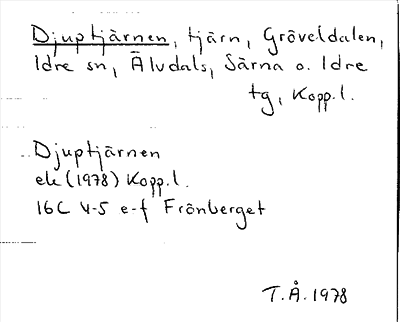 Djuptjärnen, tjärn, Gröveldalen,
Idre sn, Älvdals, Särna o. Idre
tg, Kopp.l.
Djuptjärnen
ek (1978) Kopp.l.
16C 4-5 e-f Frönberget
T.Å. 1978